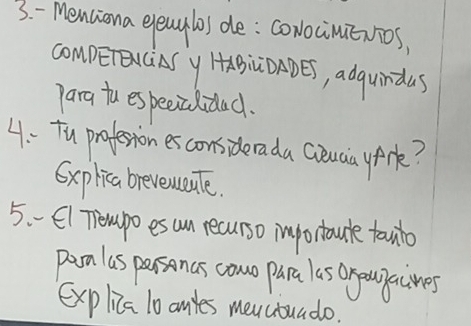 3.- Menciona ejemplos de: CONOCIMIENTOS,
COMPETENCIAS y HABILIDADES, adquiridas
para tu especialidad.
4.- Tu profesion es considerada Ciencia y Arte?
Explica brevemente.
5.- El Tiempo es un recurso importante tanto
para las personas como para las Organizaciones
Explica lo antes mencionado.